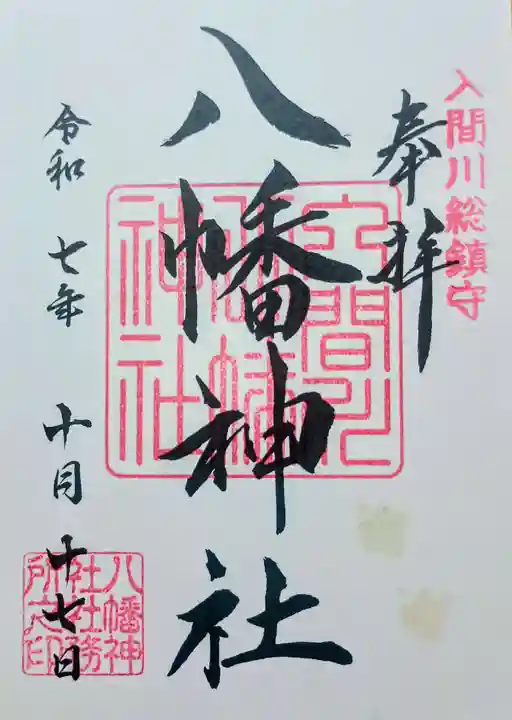 入間川総鎮守
奉拝
八幡神社
入間川
八幡
神社
令和 七年 十月 十七日
八幡神
社社務
所之印